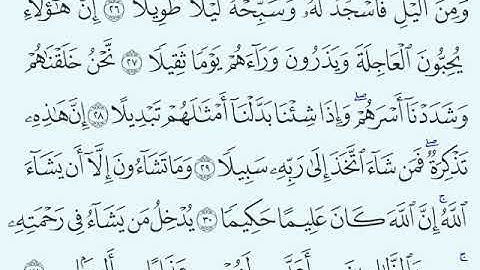 وَمِنَ ٱلَّيۡلِ فَٱسۡجُدۡ لَهُۥ وَسَبِّحۡهُ لَيۡلٗا طَوِيلًا ٢٦ إِنَّ هَٰٓؤُلَآءِ
يُحِبُّونَ ٱلۡعَاجِلَةَ وَيَذَرُونَ وَرَآءَهُمۡ يَوۡمٗا ثَقِيلٗا ٢٧ نَّحۡنُ خَلَقۡنَٰهُمۡ
وَشَدَدۡنَآ أَسۡرَهُمۡۖ وَإِذَا شِئۡنَا بَدَّلۡنَآ أَمۡثَٰلَهُمۡ تَبۡدِيلًا ٢٨ إِنَّ هَٰذِهِۦ
تَذۡكِرَةٞۖ فَمَن شَآءَ ٱتَّخَذَ إِلَىٰ رَبِّهِۦ سَبِيلٗا ٢٩ وَمَا تَشَآءُونَ إِلَّآ أَن يَشَآءَ
ٱللَّهُۚ إِنَّ ٱللَّهَ كَانَ عَلِيمًا حَكِيمٗا ٣٠ يُدۡخِلُ مَن يَشَآءُ فِي رَحۡمَتِهِۦۚ